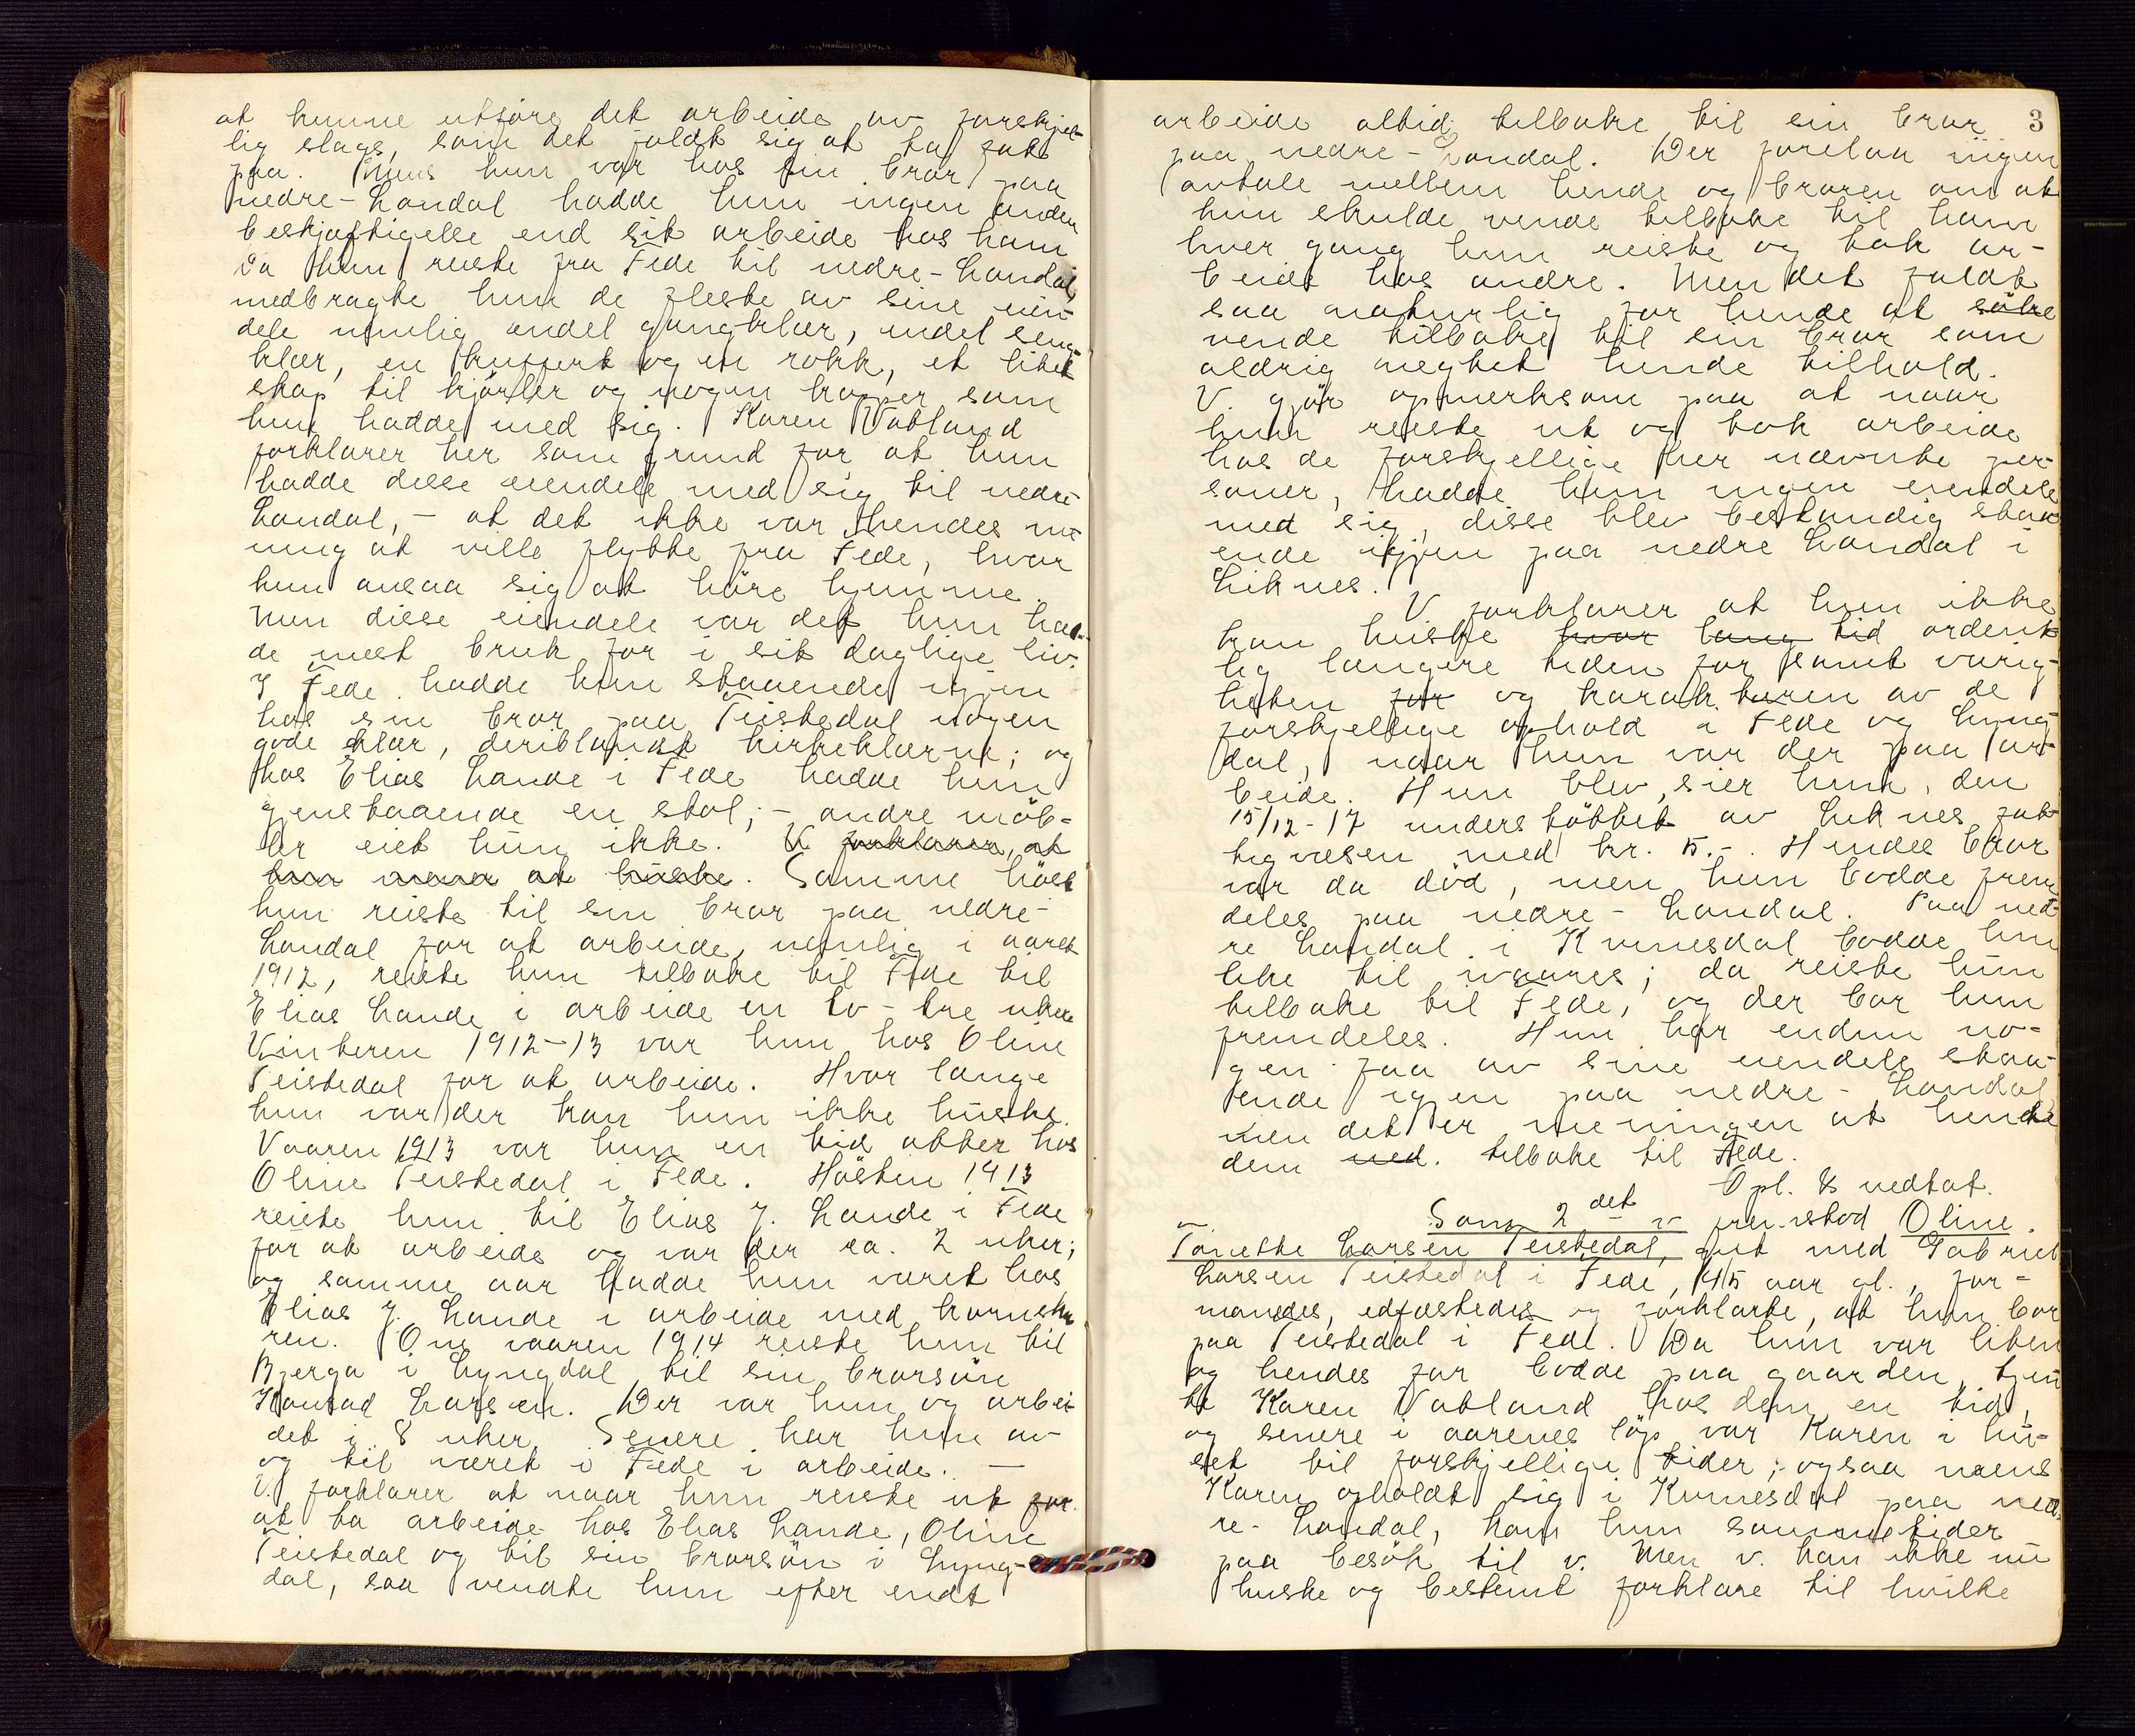 at kunne utføre det arbeide av forskjel-
lig slags, som det faldt sig at ta fat
paa. Mens hun var hos sin bror paa
nedre-Landal hadde hun ingen anden
beskjæftigelse end sit arbeide hos ham
Da hun reiste fra Fede til nedre-Landal,
medbragte hun de fleste av sine eien-
dele nemlig endel gangklær, endel seng-
klær, en kuffert og en rokk, et litet
skap til kjørler og nogen kopper som
hun hadde med sig. Karen Vatland
forklarer her som grund for at hun
hadde disse eiendele med sig til nedre-
Landal, - at det ikke var hendes me-
ning at ville flytte fra Fede, hvor
hun ansaa sig at høre hjemme.
Men disse eiendele var det hun had-
de mest bruk for i sit daglige liv.
I Fede hadde hun staaende igjen
hos sin bror paa Teistedal nogen
gode klær, deriblandt kirkeklærne; og
hos Elias Lande i Fede hadde hun
gjenstaaende en stol; - andre møb-
ler eiet hun ikke. V. forklarer, at
hun mener at huske. Samme høst
hun reiste til sin bror paa nedre-
Landal for at arbeide, nemlig i aaret
1912, reiste hun tilbake til Fede til
Elias Lande i arbeide en to-tre uker
Vinteren 1912-13 var hun hos Oline
Teistedal for at arbeide. Hvor længe
hun var der kan hun ikke huske.
Vaaren 1913 var hun en tid atter hos
Oline Teistedal i Fede. Høsten 1913
reiste hun til Elias J. Lande i Fede
for at arbeide og var der ca. 2 uker;
og samme aar hadde hun været hos
Elias J. Lande i arbeide med kornsku
ren. Om vaaren 1914 reiste hun til
Bjerga i Lyngdal til sin brorsøn
Konrad Larsen. Der var hun og arbei-
det i 8 uker. Senere har hun av
og til været i Fede i arbeide. -
V. forklarer at naar hun reiste ut for
at ta arbeide hos Elias Lande, Oline
Teistedal og til sin brorsøn i Lyng-
dal, saa vendte hun efter endt
3
arbeide altid tilbake til sin bror
paa nedre-Landal. Der forelaa ingen
avtale mellem hende og broren om at
hun skulde vende tilbake til ham
hver gang hun reiste og tok ar-
beide hos andre. Men det faldt
saa naturlig for hende at søke
vende tilbake til sin bror som
aldrig negtet hende tilhold.
V. gjør opmerksom paa at naar
hun reiste ut og tok arbeide
hos de forskjellige her nævnte per-
soner, hadde hun ingen eiendele
med sig, disse blev bestandig staa-
ende igjen paa nedre Landal i
Liknes.
V. forklarer at hun ikke
kan huske hvor lang tid ordent-
lig længere tiden for samt varig-
heten for og karakteren av de
forskjellige ophold i Fede og Lyng-
dal, naar hun var der paa ar-
beide. Hun blev, sier hun, den
15/12-17 understøttet av Liknes fat-
tigvæsen med kr. 5.-. Hendes bror
var da død, men hun bodde frem-
deles paa nedre-Landal. Paa ned-
re Landal i Kvinesdal bodde hun
like til ivaares; da reiste hun
tilbake til Fede, og der bor hun
fremdeles. Hun har endnu no-
gen faa av sine eiendele staa-
ende igjen paa nedre-Landal
men det er meningen at hende
dem ned. tilbake til Fede.
Opl. & vedtat.
Som 2det v. fremstod Oline
Tonette Larsen Teistedal, gift med Gabriel
Larsen Teistedal i Fede, 45 aar gl., for-
manedes, edfæstedes og forklarte, at hun bor
paa Teistedal i Fede. Da hun var liten
og hendes far bodde paa gaarden, tjen-
te Karen Vatland hos dem en tid,
og senere i aarenes løp var Karen i hu-
set til forskjellige tider; ogsaa mens
Karen opholdt sig i Kvinesdal paa ned-
re-Landal, kom hun sommetider
paa besøk til v. Men v. kan ikke nu
huske og bestemt forklare til hvilke